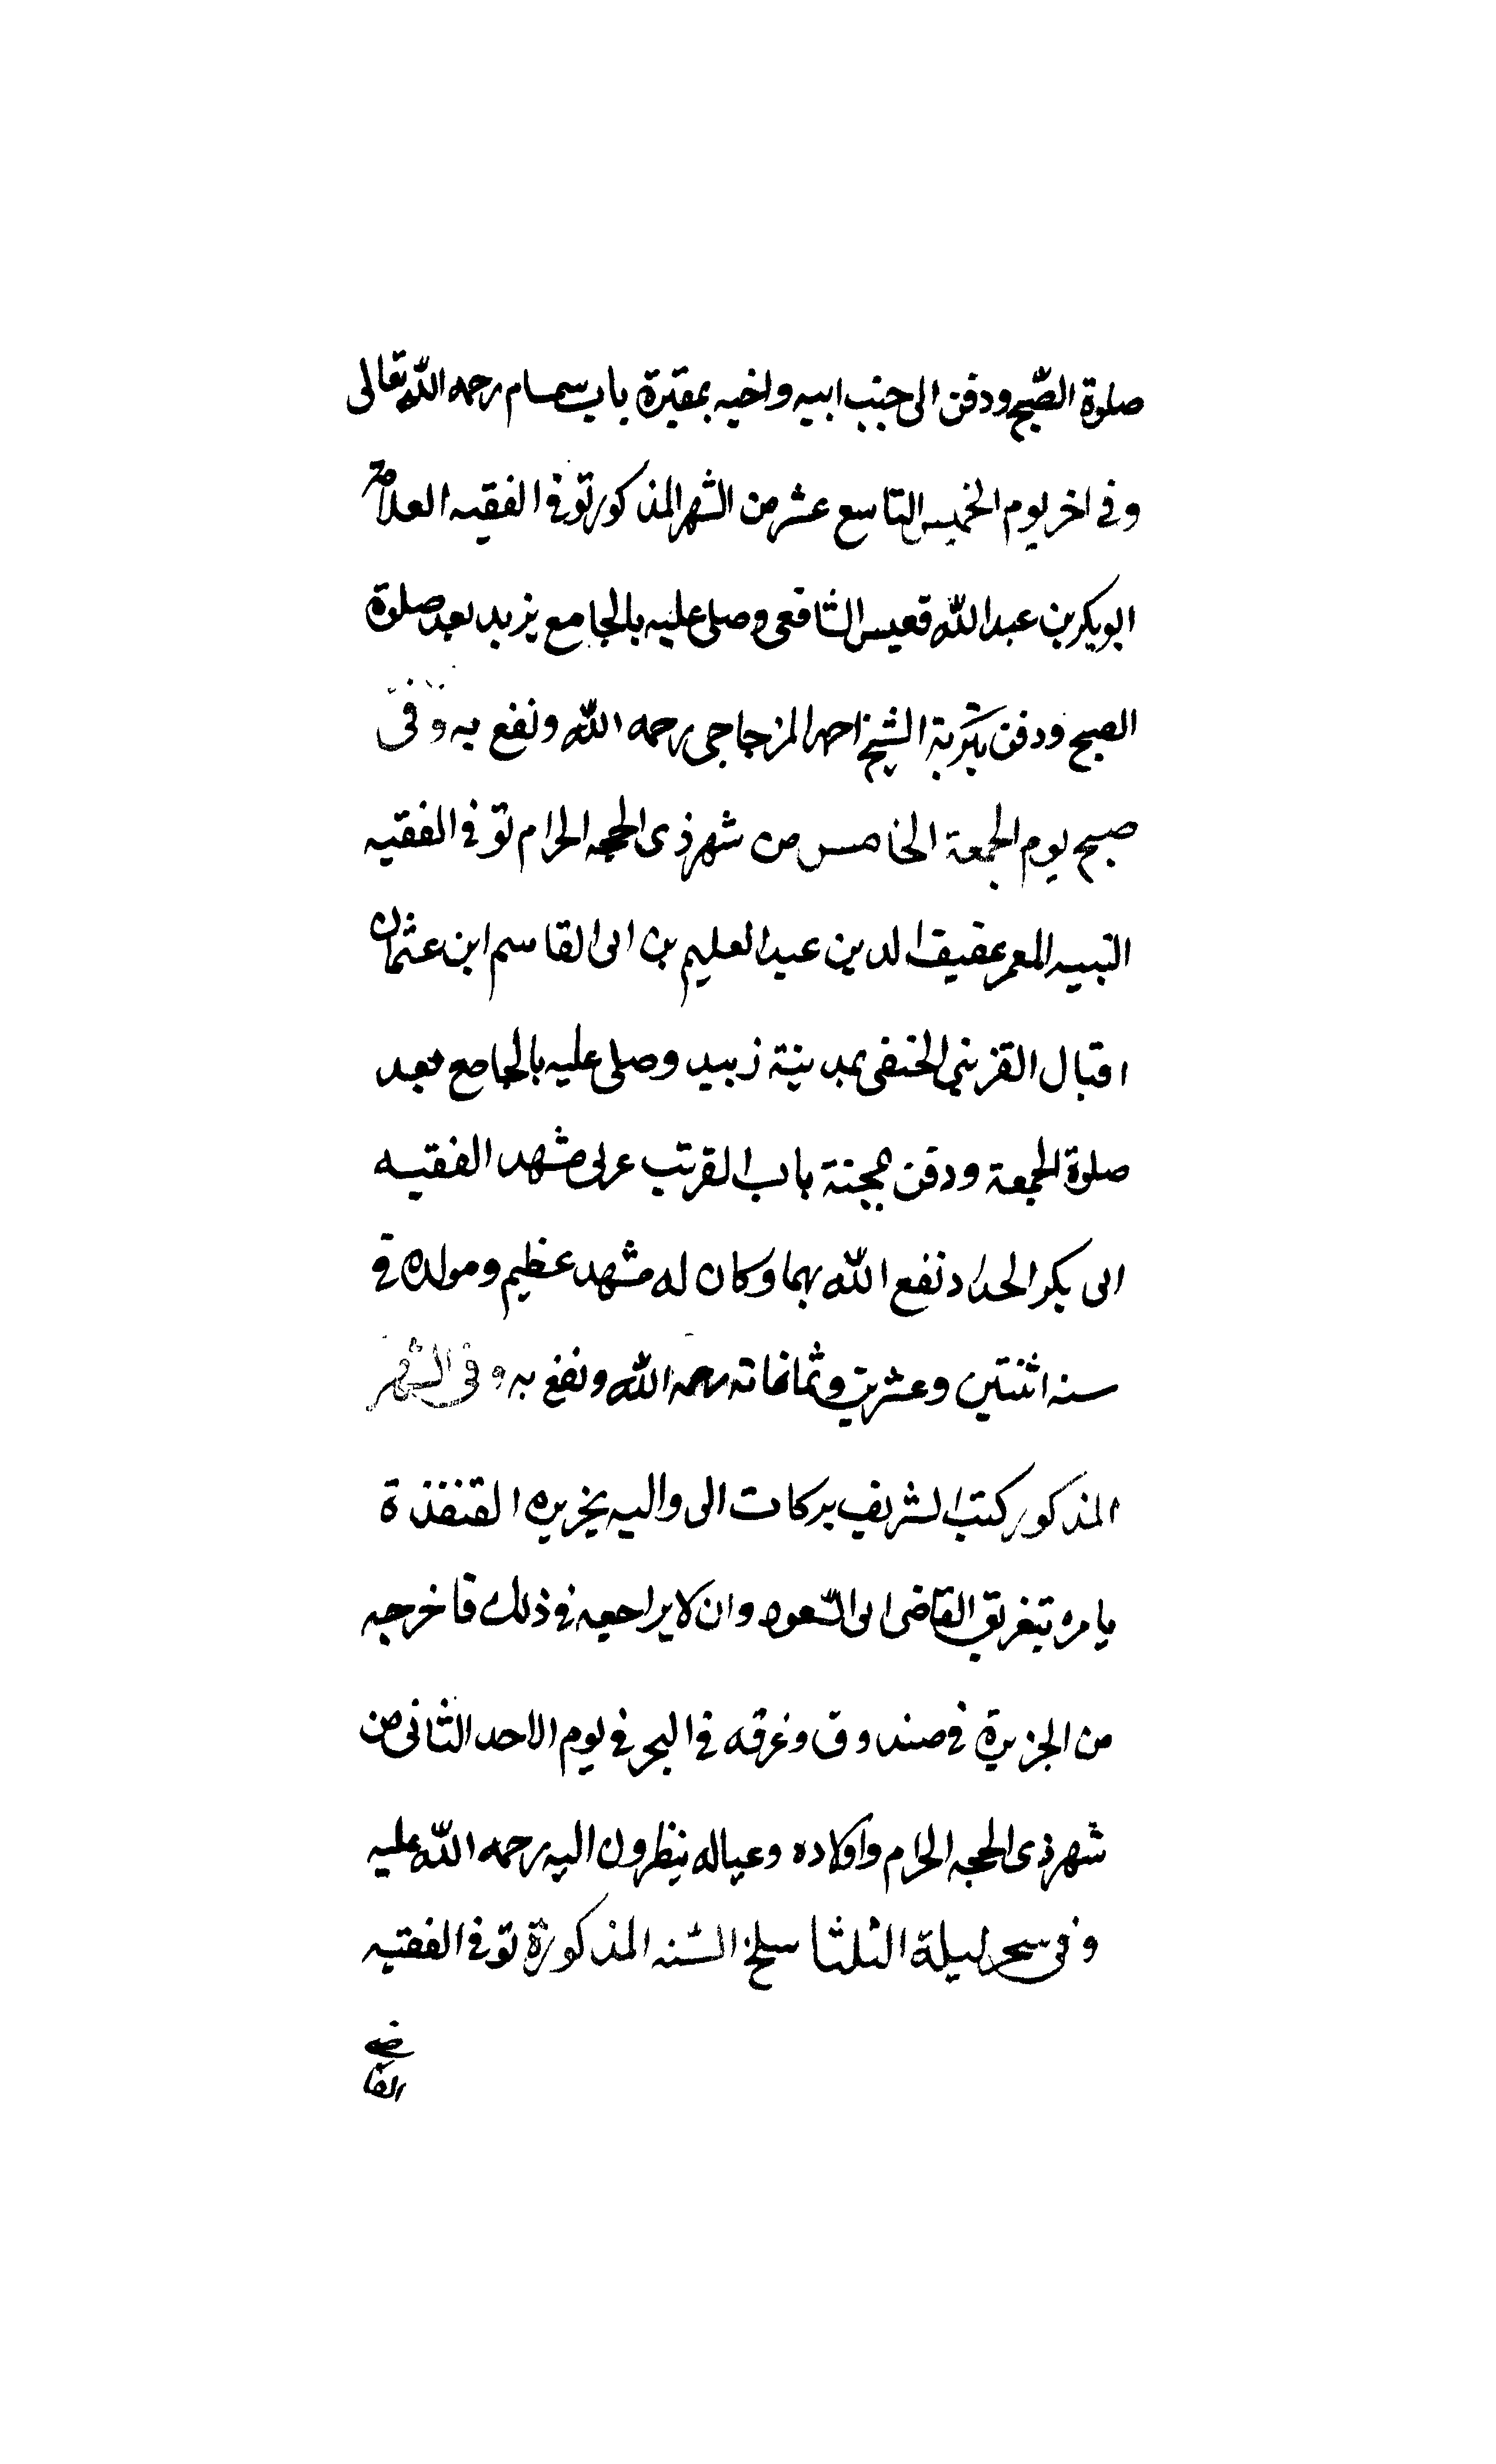 صلوة الصّبح ودفن الى جنب ابيه واخيه بمقبرة باب سهام رحمه الله تعالى
وفى اخر يوم الخميس التاسع عشر من الشهر المذكور توفى الفقيه العلامة
ابو بكر بن عبد الله قعيس الشافعى وصلى عليه بالجامع بزبيد بعد صلوة
الصبح ودفن بتربة الشيخ احمد المزجاجى رحمه الله ونفع به وفى
صبح يوم الجمعة الخامس من شهر ذى الحجه الحرام توفى الفقيه
النبيه المعمر عفيف الدين عبد العليم بن ابى القاسم ابن عثمان
اقبال القرتبي الحنفى بمدينة زبيد وصلى عليه بالجامع بعد
صلوة الجمعة ودفن بمجنة باب القرتب غربى مشهد الفقيه
ابى بكر الحداد نفع الله بهما وكان له مشهد عظيم ومولده فى
سنه اثنتين وعشرين وثمانمائه رحمه الله ونفع به وفى الشهر
المذكور كتب الشريف بركات الى واليه بجزيره القنفذة
يامره بتغريق القاضى ابى السّعود وان لا يراجعه فى ذلك فاخرجه
من الجزيرة فى صندوق وغرقه فى البحر فى يوم الاحد الثانى من
شهر ذى الحجه الحرام واولاده وعياله ينظرون اليه رحمه الله عليه
وفى سحر ليلة الثلثا سلخ السّنه المذكورة توفى الفقيه
القاضى